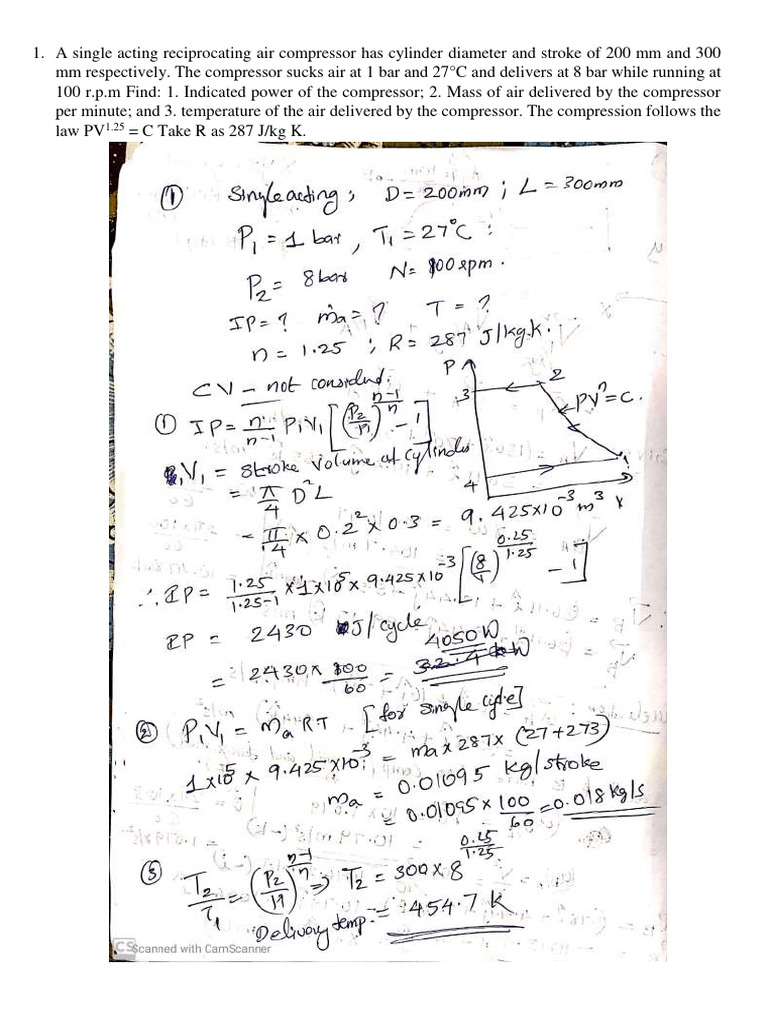 1. A single acting reciprocating air compressor has cylinder diameter and stroke of 200 mm and 300
mm respectively. The compressor sucks air at 1 bar and 27°C and delivers at 8 bar while running at
100 r.p.m Find: 1. Indicated power of the compressor; 2. Mass of air delivered by the compressor
per minute; and 3. temperature of the air delivered by the compressor. The compression follows the
law PV^1.25 = C Take R as 287 J/kg K.
① Single acting; D = 200mm ; L = 300mm
P₁ = 1 bar, T₁ = 27°C ;
P₂ = 8 bar N = 100 rpm.
IP = ? ṁa = ? T = ?
n = 1.25 ; R = 287 J/kg.k.
CV – not considered;
① IP = n/(n-1) P₁V₁ [(P₂/P₁)^((n-1)/n) - 1]
P
3
2
PVⁿ = C.
1
4
V₁ = Stroke volume of cylinder
= π/4 D²L
= π/4 × 0.2² × 0.3 = 9.425×10⁻³ m³
∴ IP = 1.25/(1.25-1) × 1×10⁵ × 9.425×10⁻³ [(8/1)^(0.25/1.25) - 1]
IP = 2430 J/cycle
= 2430 × 100/60 = 4050W
② P₁V₁ = ma RT [for single cycle]
1×10⁵ × 9.425×10⁻³ = ma × 287 × (27+273)
ma = 0.01095 kg/stroke
= 0.01095 × 100/60 = 0.018 kg/s
③ T₂/T₁ = (P₂/P₁)^((n-1)/n) ⇒ T₂ = 300 × 8^(0.25/1.25)
Delivery temp. = 454.7 K
CS Scanned with CamScanner